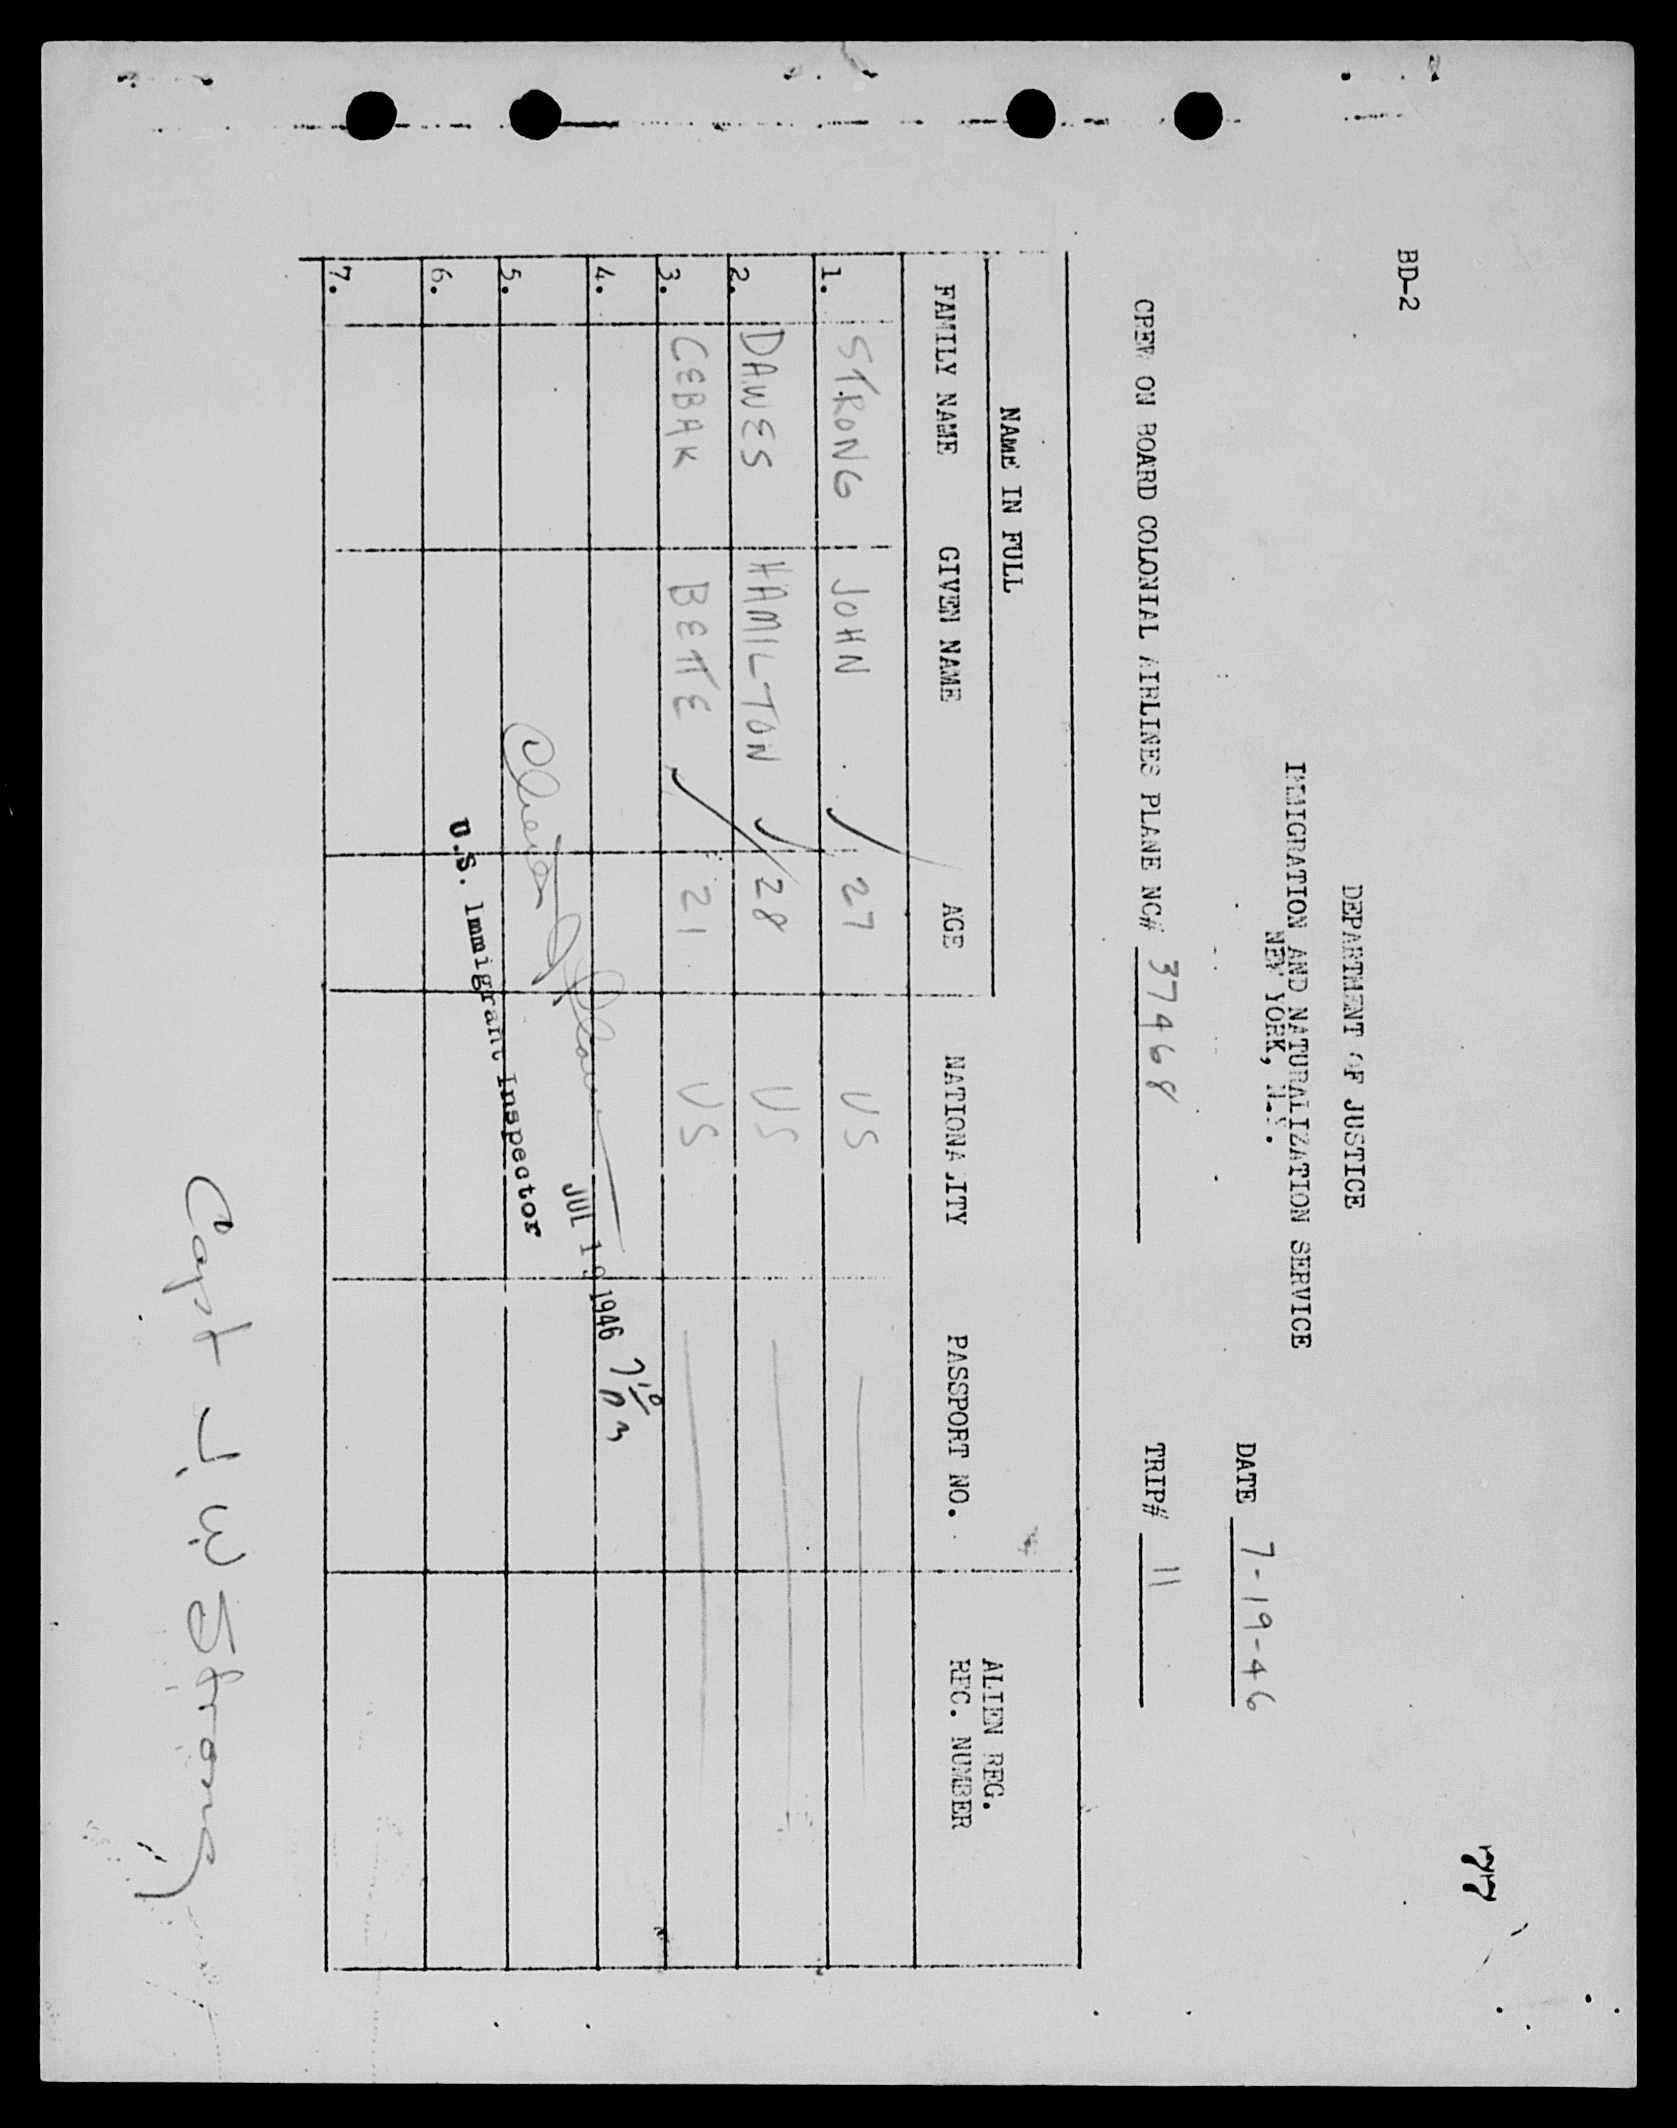 BD-2
77
DEPARTMENT OF JUSTICE
IMMIGRATION AND NATURALIZATION SERVICE
NEW YORK, N.Y.
DATE 7-19-46
CREW ON BOARD COLONIAL AIRLINES PLANE NC# 37468 TRIP# 11
NAME IN FULL
ALIEN REG.
FAMILY NAME GIVEN NAME AGE NATIONALITY PASSPORT NO. REC. NUMBER
1. STRONG JOHN 27 US
2. DAWES HAMILTON 28 US
3. CEBAK BETTE 21 US
4.
JUL 19 1946 7 10 PM
5.
U.S. Immigrant Inspector
6.
7.
Capt J. W. Strong